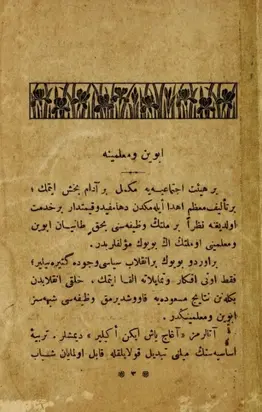 ابوين و معلمينه
بر هيئت اجتماعيه‌يه مكمل بر آدام بخش ايتمك؛
بر تأليف معظم اهدا ايله‌مكدن دها مفيد و قيمتدار بر خدمت
اولديغنه نظراً بر ملتك وظيفه‌سى بحق طانيان ابوين
ومعلمينى اوملتك اڭ بويوك مؤلفلريدر.
براوردو بويوك برانقلاب سياسى وجوده كتيره‌بيلير؛
فقط اونى افكار وتمايلاته القا ايتمك، خلقى انقلابدن
بكله‌نن نتايج مسعوده‌يه قاووشديرمق وظيفه‌سى شبهه‌سز
ابوين ومعلمينكدر.
آتالرمز «آغاج ياش ايكن أكيلير» ديمشلر. تربيۀ
اساسيه‌سنك مبانى تبديل قولايلقله قابل اولمايان شباب
* ٣ *